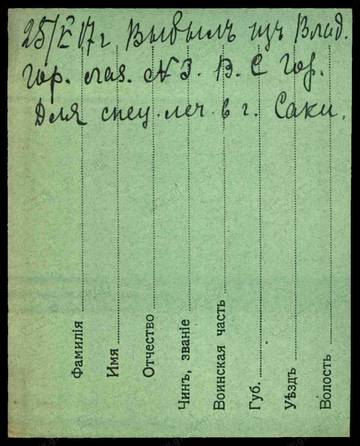 25/V 17 г Выбылъ изъ Влад.
гор. лаз. № 3. В. С. Гор.
Для спец. леч. в г. Саки.
Фамилія
Имя
Отчество
Чинъ, званіе
Воинская часть
Губ.
Уѣздъ
Волость